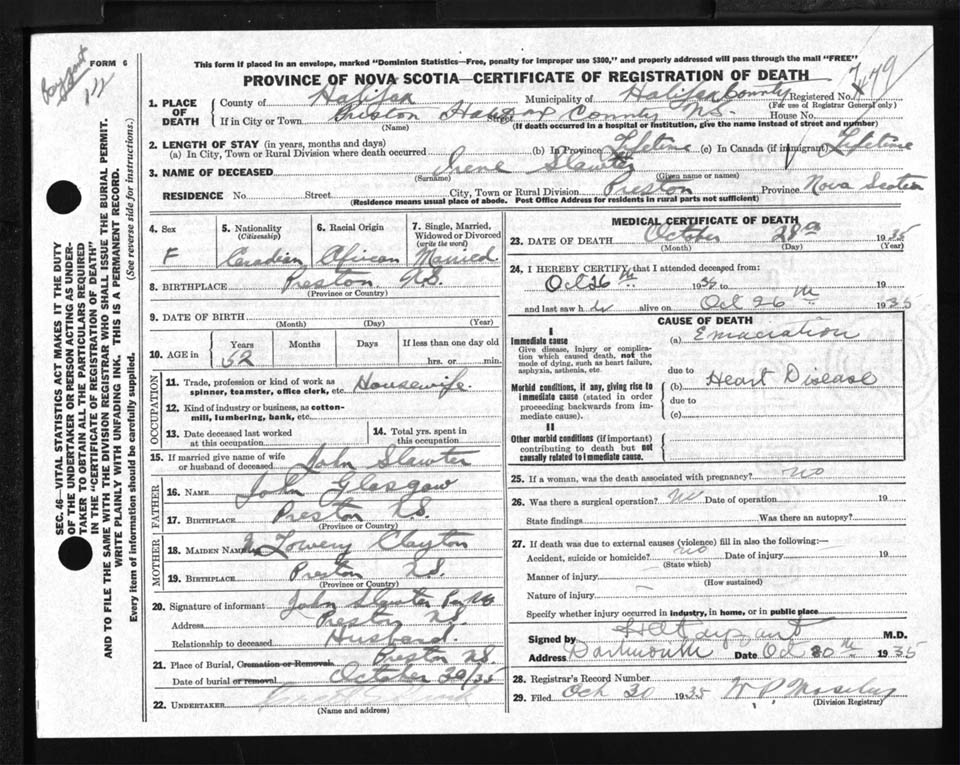 FORM 6
This form if placed in an envelope, marked "Dominion Statistics—Free, penalty for improper use $300," and properly addressed will pass through the mail "FREE"
PROVINCE OF NOVA SCOTIA—CERTIFICATE OF REGISTRATION OF DEATH
1. PLACE OF DEATH
County of Halifax Municipality of Halifax County Registered No. 7479
(For use of Registrar General only)
If in City or Town Preston Halifax County N.S. House No.
(Name) Street
(If death occurred in a hospital or institution, give the name instead of street and number)
2. LENGTH OF STAY (in years, months and days)
(a) In City, Town or Rural Division where death occurred (b) In Province Lifetime (c) In Canada (if immigrant) Lifetime
3. NAME OF DECEASED Irene Slawter
(Surname) (Given name or names)
RESIDENCE No. Street City, Town or Rural Division Preston Province Nova Scotia
(Residence means usual place of abode. Post Office Address for residents in rural parts not sufficient)
4. Sex F
5. Nationality (Citizenship) Canadian
6. Racial Origin African
7. Single, Married, Widowed or Divorced (write the word) Married
8. BIRTHPLACE Preston N.S.
(Province or Country)
9. DATE OF BIRTH
(Month) (Day) (Year)
10. AGE in Years Months Days If less than one day old
52 hrs. or min.
OCCUPATION
11. Trade, profession or kind of work as spinner, teamster, office clerk, etc. Housewife
12. Kind of industry or business, as cotton-mill, lumbering, bank, etc.
13. Date deceased last worked at this occupation
14. Total yrs. spent in this occupation
15. If married give name of wife or husband of deceased John Slawter
FATHER
16. NAME John Glasgow
17. BIRTHPLACE Preston N.S.
(Province or Country)
MOTHER
18. MAIDEN NAME Lowery Clayton
19. BIRTHPLACE Preston N.S.
(Province or Country)
20. Signature of informant John Slawter
Address Preston N.S.
Relationship to deceased Husband.
21. Place of Burial, Cremation or Removal Preston N.S.
Date of burial or removal October 30/35
22. UNDERTAKER
(Name and address)
MEDICAL CERTIFICATE OF DEATH
23. DATE OF DEATH October 28th 1935
(Month) (Day) (Year)
24. I HEREBY CERTIFY that I attended deceased from:
Oct 26th 19
and last saw her alive on Oct 26th 1935
CAUSE OF DEATH
I
Immediate cause
Give disease, injury or complication which caused death, not the mode of dying, such as heart failure, asphyxia, asthenia, etc.
(a) Emaciation
due to
Morbid conditions, if any, giving rise to immediate cause (stated in order proceeding backwards from immediate cause).
(b) Heart Disease
due to
(c)
II
Other morbid conditions (if important) contributing to death but not causally related to immediate cause.
25. If a woman, was the death associated with pregnancy? no
26. Was there a surgical operation? no Date of operation 19
State findings Was there an autopsy?
27. If death was due to external causes (violence) fill in also the following:—
Accident, suicide or homicide? no Date of injury 19
(State which)
Manner of injury
(How sustained)
Nature of injury
Specify whether injury occurred in industry, in home, or in public place
Signed by M.D.
Address Dartmouth Date Oct 30th 1935
28. Registrar's Record Number
29. Filed Oct 30 1935 W P Mosley
(Division Registrar)
SEC. 46—VITAL STATISTICS ACT MAKES IT THE DUTY
OF THE UNDERTAKER OR PERSON ACTING AS UNDER-
TAKER TO OBTAIN ALL THE PARTICULARS REQUIRED
IN THE "CERTIFICATE OF REGISTRATION OF DEATH"
AND TO FILE THE SAME WITH THE DIVISION REGISTRAR WHO SHALL ISSUE THE BURIAL PERMIT.
WRITE PLAINLY WITH UNFADING INK. THIS IS A PERMANENT RECORD.
Every item of information should be carefully supplied. (See reverse side for instructions.)